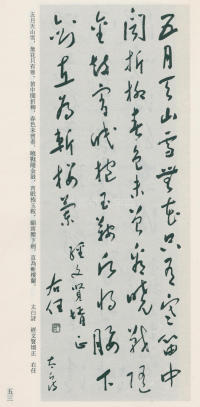 五月天山雪無花只有寒笛中
聞折柳春色未曾看曉戰隨
金鼓宵眠抱玉鞍願將腰下
劍直為斬樓蘭
經文賢婿正
右任
太白詩
五月天山雪，無花只有寒，笛中聞折柳，春色未曾看，曉戰隨金鼓，宵眠抱玉鞍，願將腰下劍，直為斬樓蘭。 太白詩 經文賢婿正 右任
五三